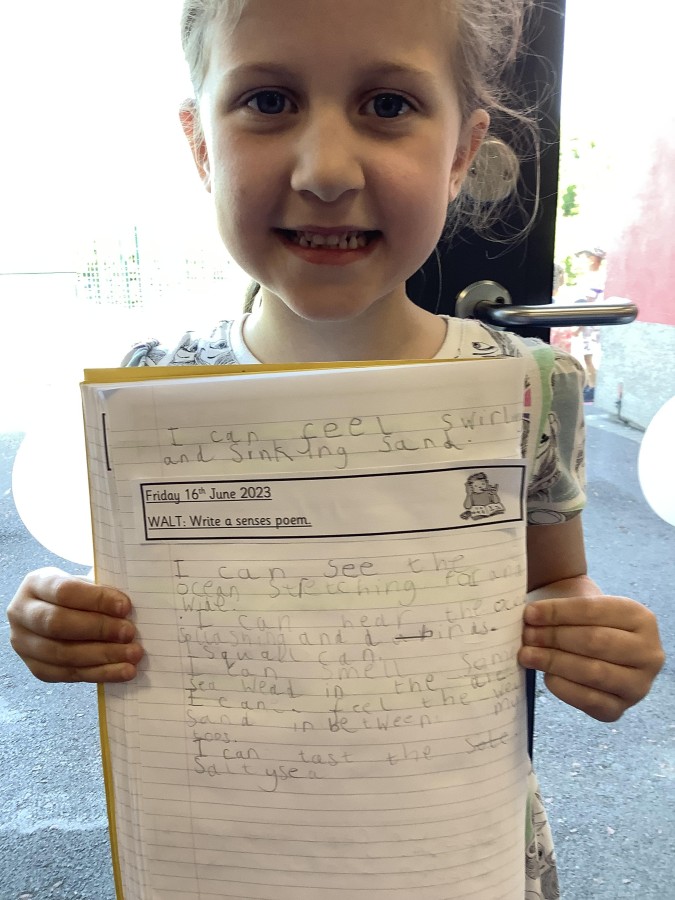 I can feel swirl
and sinking sand.
Friday 16th June 2023
WALT: Write a senses poem.
I can see the
ocean stretching for and
wide.
I can hear the
splashing and
squall can.
I can smell
sea wead in the
I can feel the
sand in between my
toes.
I can tast the
salty sea